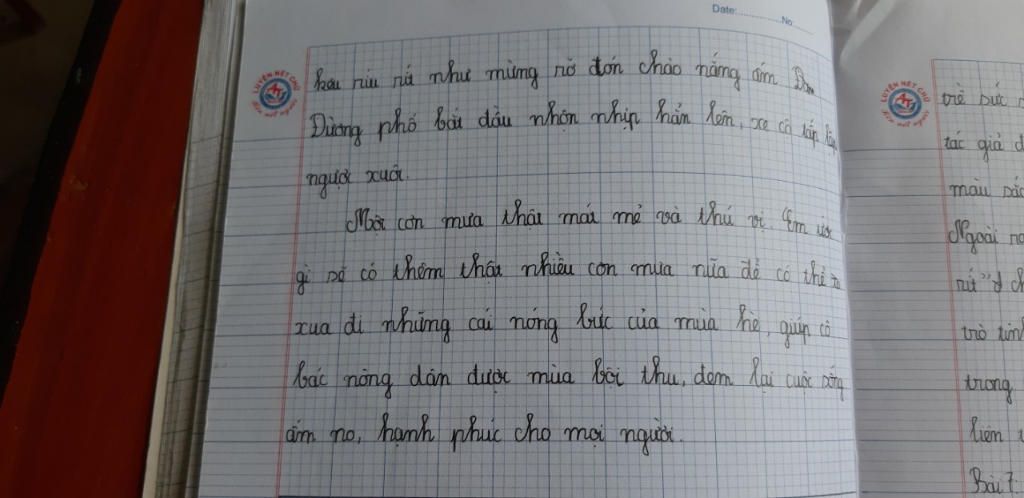 Date: No
kêu ríu rít như mừng rỡ đón chào nắng ấm
Đường phố bắt đầu nhộn nhịp hẳn lên, xe cộ tấp
ngược xuôi.
Một cơn mưa thật mát mẻ và thú vị. Em ước
gì sẽ có thêm thật nhiều cơn mưa nữa để có thể
xua đi những cái nóng bức của mùa hè, giúp cô
bác nông dân được mùa bội thu, đem lại cuộc sống
ấm no, hạnh phúc cho mọi người.
LUYỆN NÉT CHỮ
RÈN NẾT NGƯỜI
trò
tác giả
màu
Ngoài
trò
trong
liên
Bài 7: